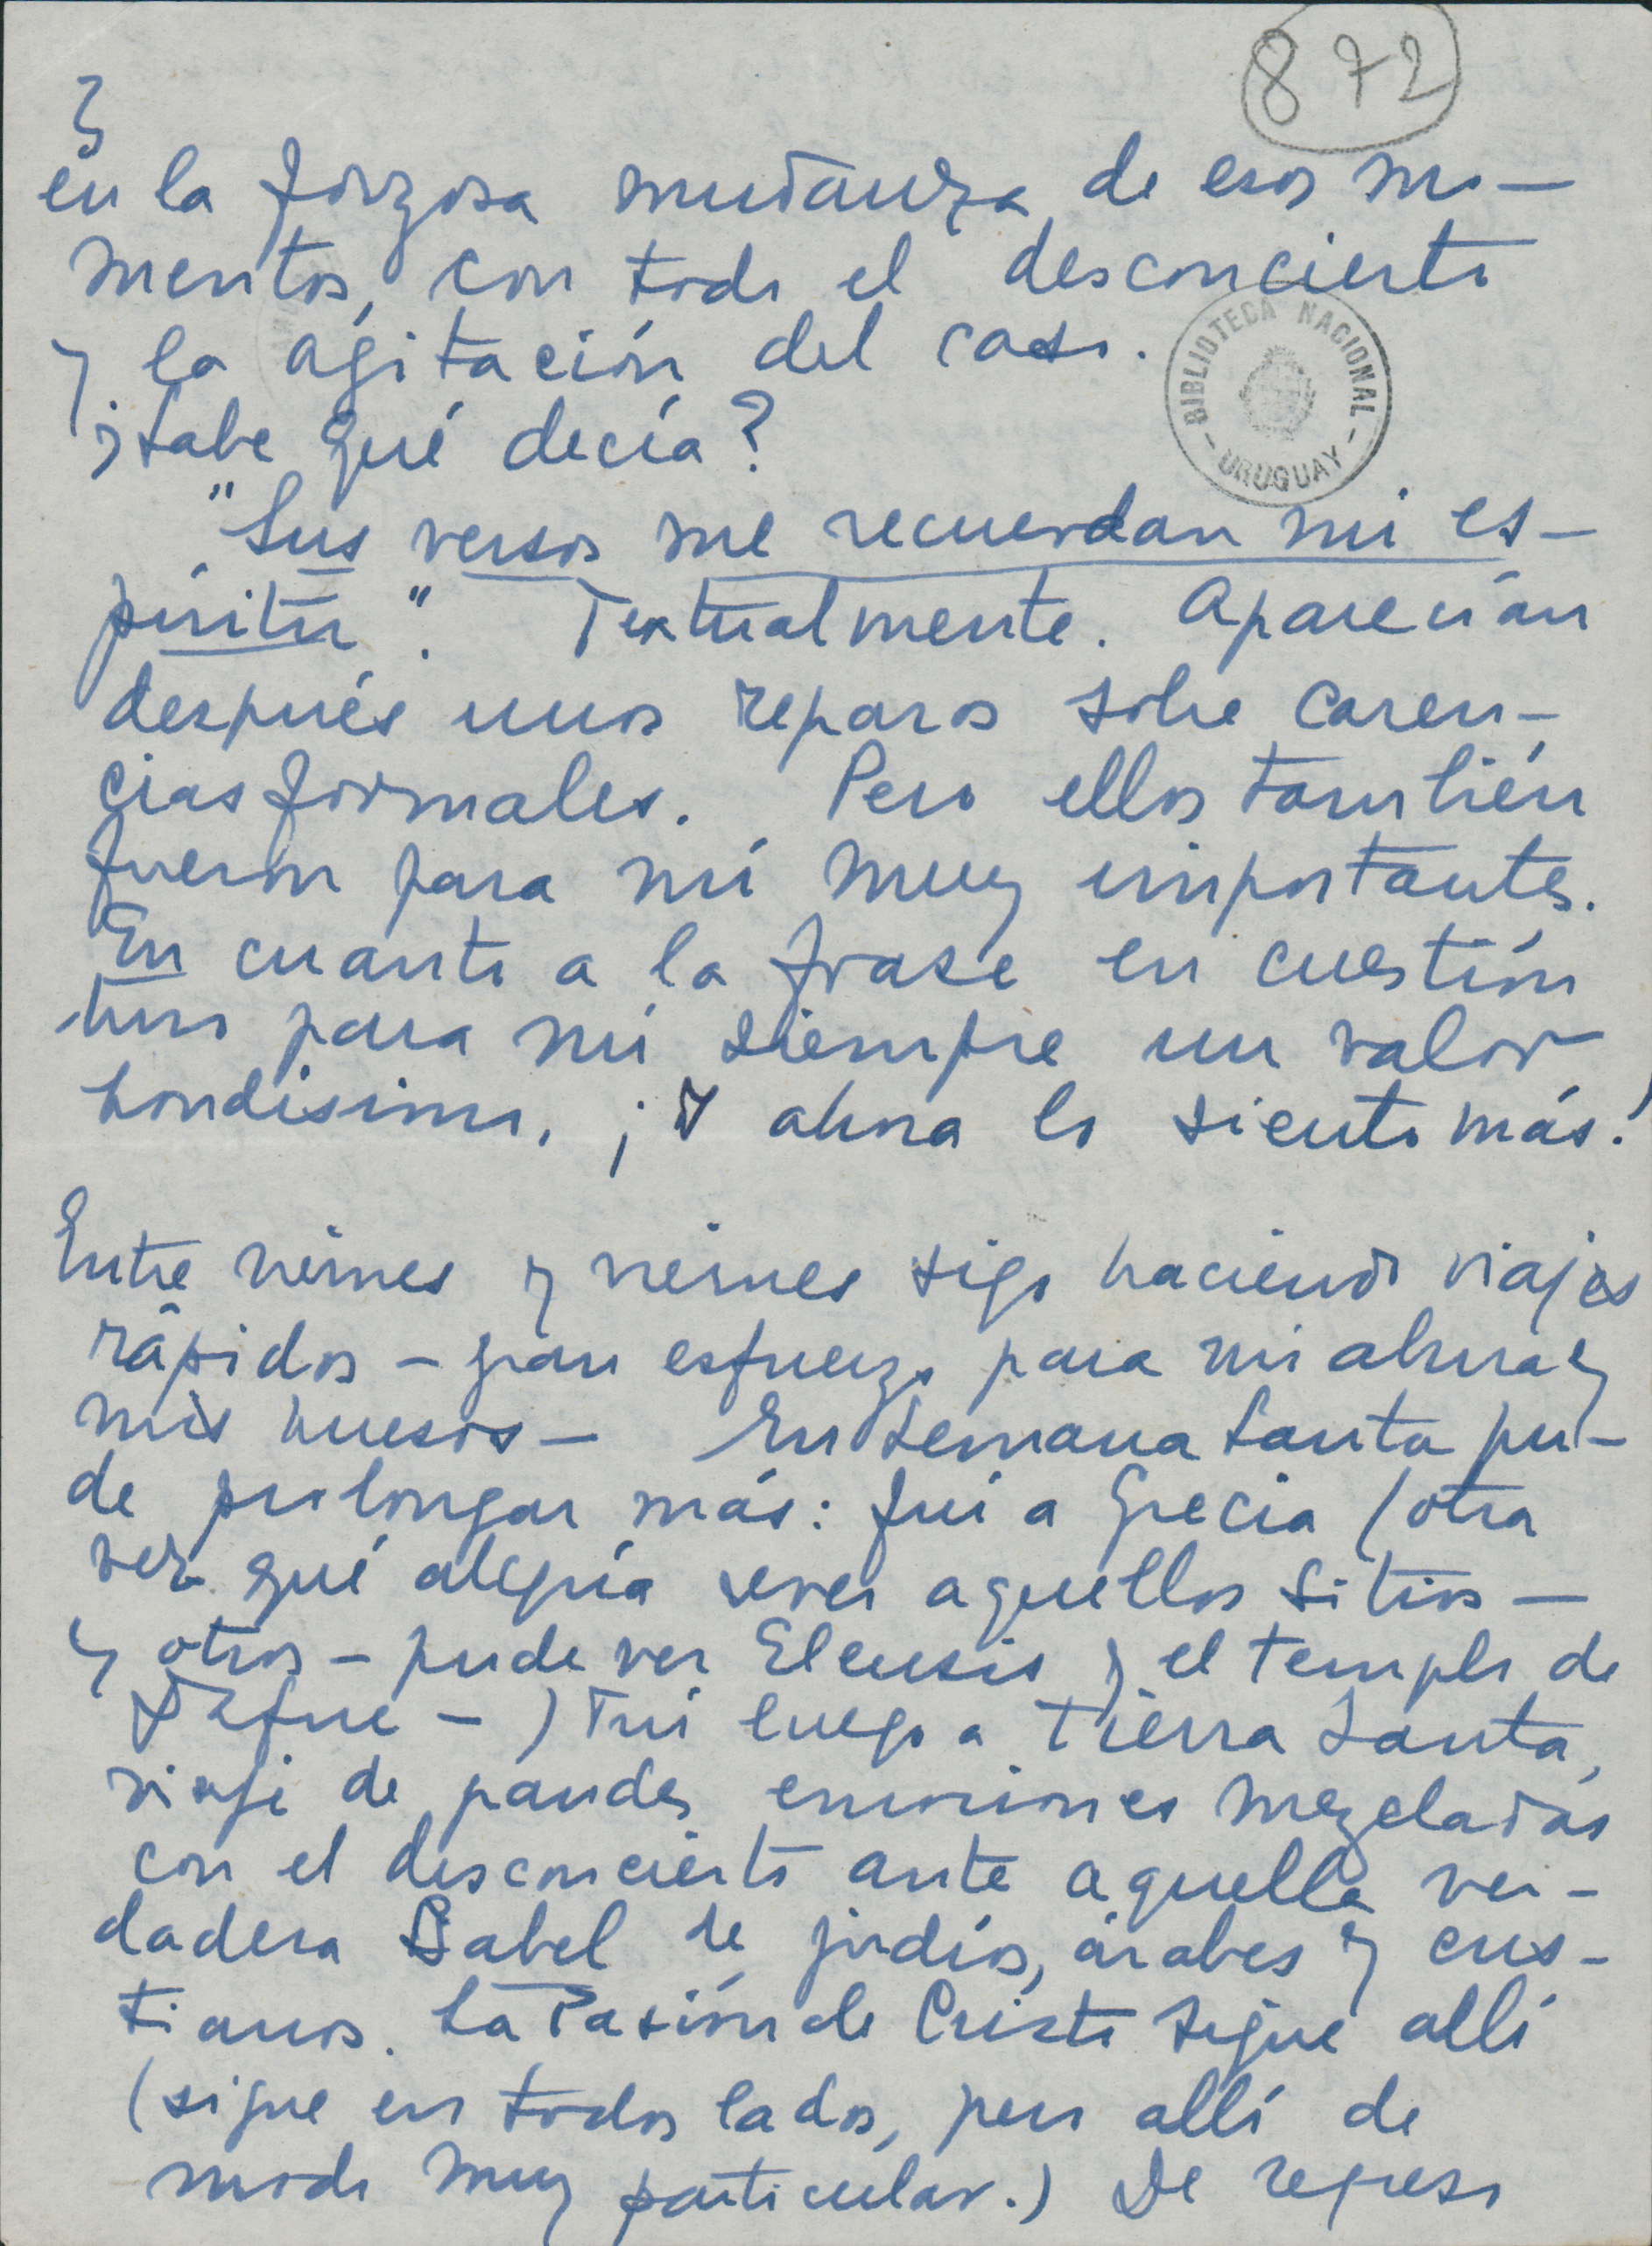 872
3
en la forzosa mudanza de esos mo-
mentos, con todo el desconcierto
y la agitación del caso.
¿Sabe qué decía?
"Sus versos me recuerdan mi es-
píritu". Textualmente. Aparecían
después unos reparos sobre caren-
cias formales. Pero ellos también
fueron para mí muy importantes.
En cuanto a la frase en cuestión
tuvo para mí siempre un valor
hondísimo. ¡Y ahora lo siento más!
Entre viernes y viernes sigo haciendo viajes
rápidos - gran esfuerzo para mi alma y
mis huesos - En Semana Santa pu-
de prolongar más: fui a Grecia (otra
vez qué alegría rever aquellos sitios -
y otros - pude ver Eleusis y el templo de
Dafne -) Fui luego a Tierra Santa,
viaje de grandes emociones mezcladas
con el desconcierto ante aquella ver-
dadera Babel de judíos, árabes y cris-
tianos. La Pasión de Cristo sigue allí
(sigue en todos lados, pero allí de
modo muy particular.) De regreso
BIBLIOTECA NACIONAL
- URUGUAY -